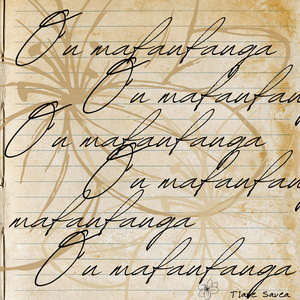 O'u mafaufauga
O'u mafaufau
O'u mafaufauga
O'u mafaufau
mafaufauga
O'u mafaufauga
Tiare Savea